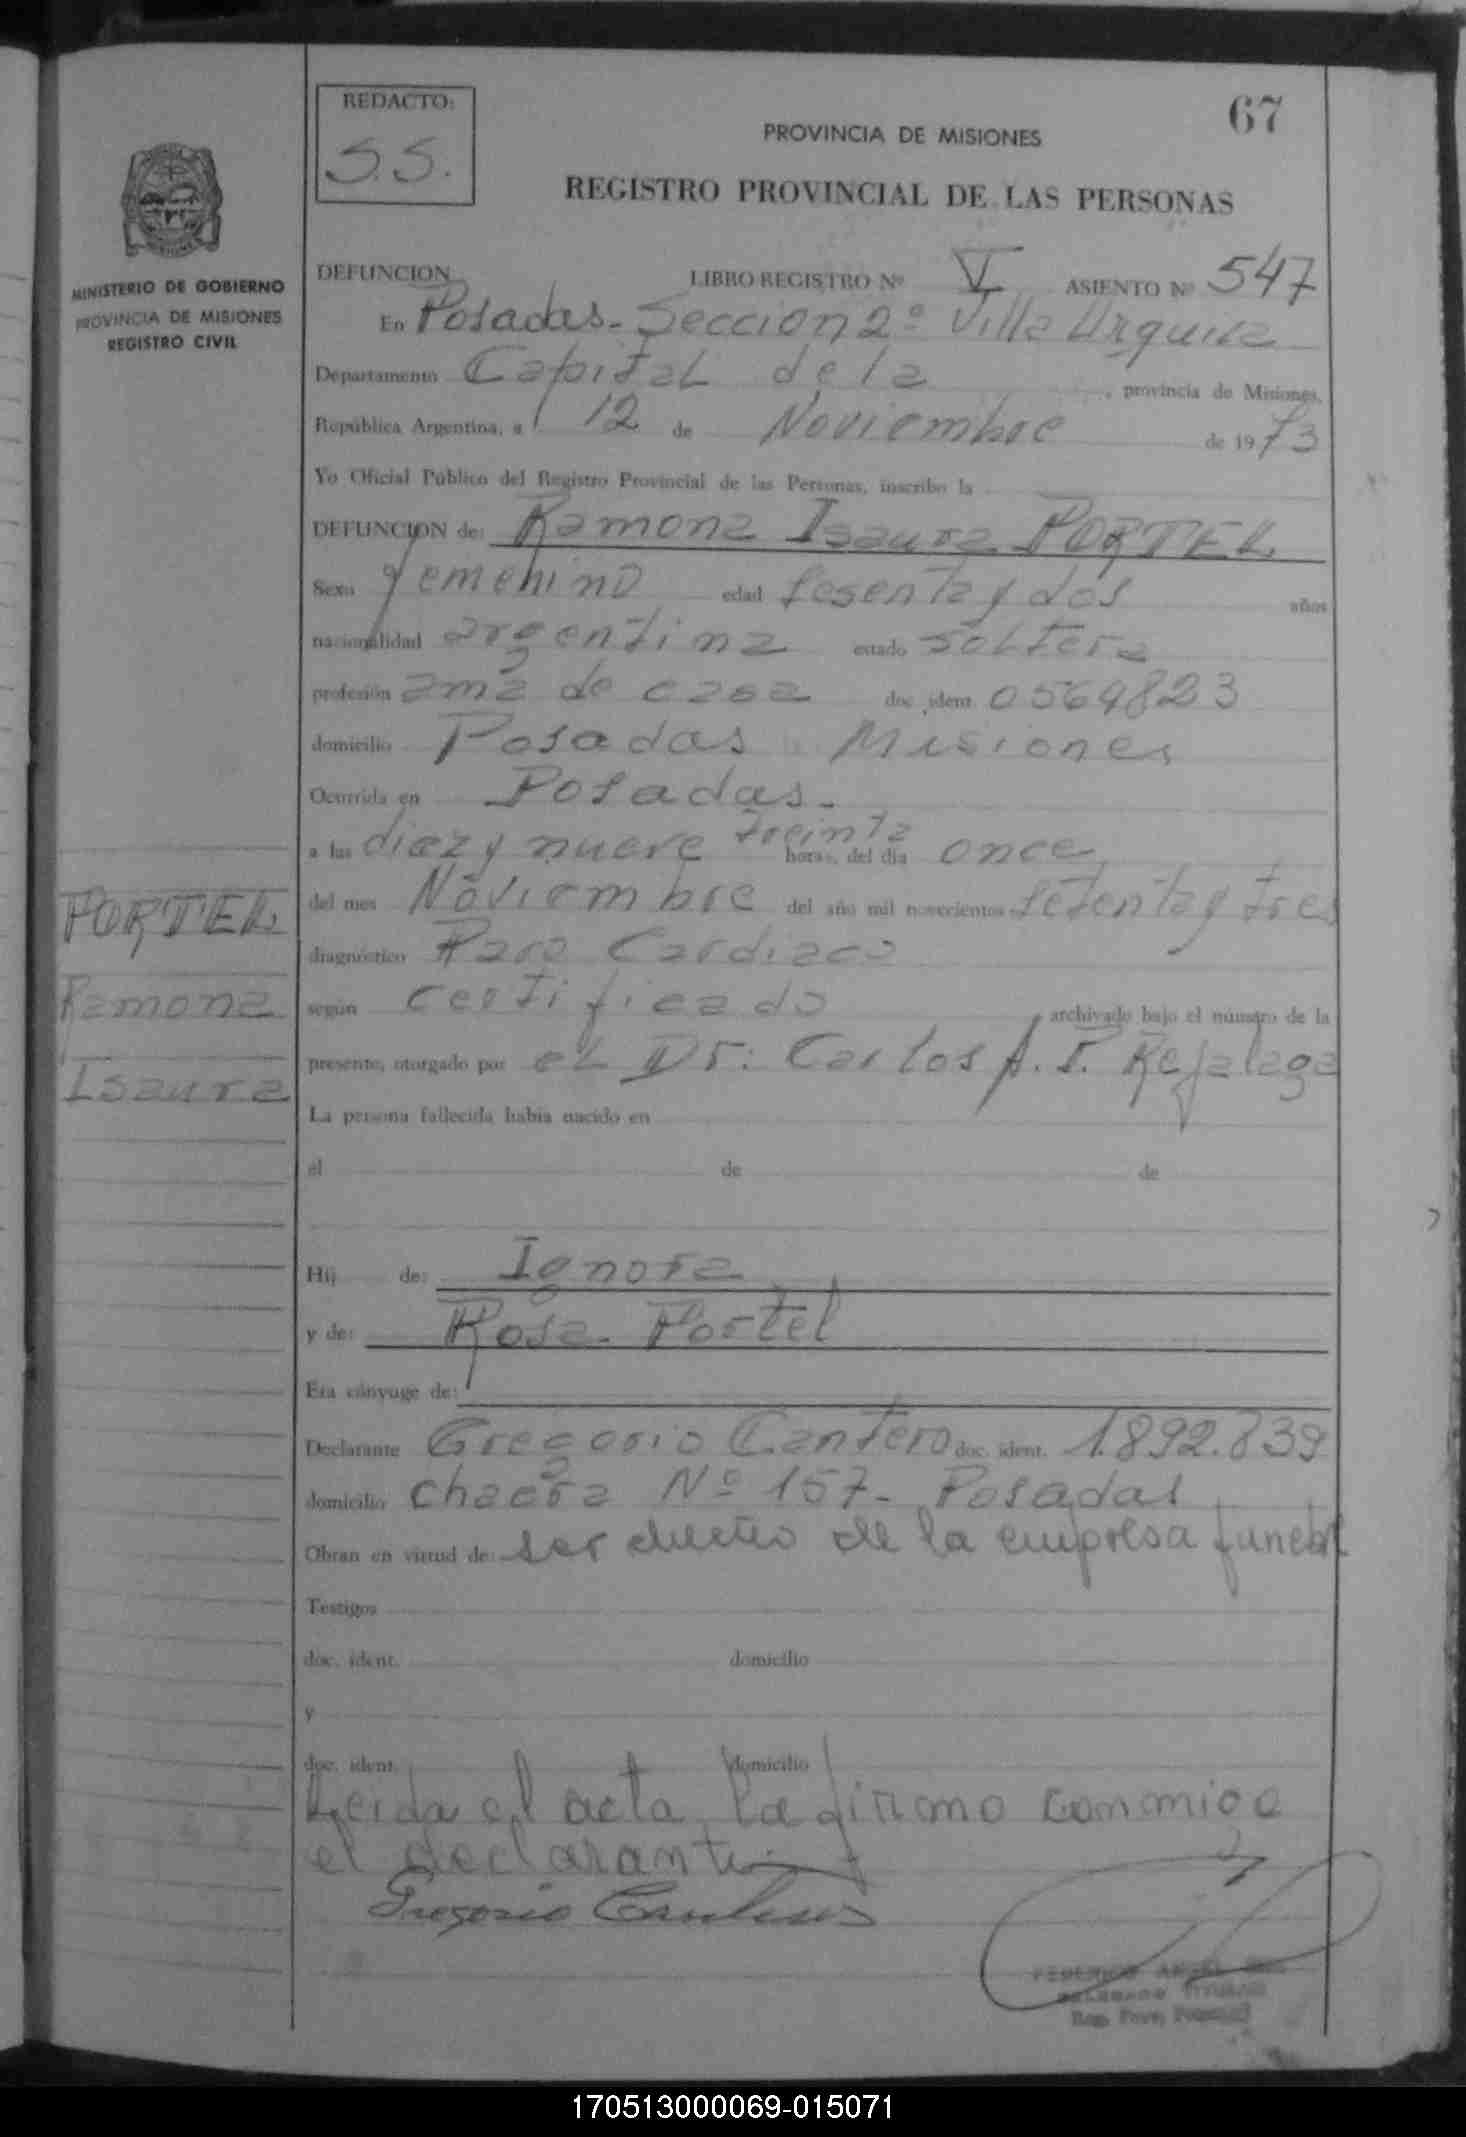 REDACTO:
S.S.
67
PROVINCIA DE MISIONES
REGISTRO PROVINCIAL DE LAS PERSONAS
MINISTERIO DE GOBIERNO
PROVINCIA DE MISIONES
REGISTRO CIVIL
DEFUNCION LIBRO REGISTRO Nº V ASIENTO Nº 547
En Posadas - Seccion 2º Villa Urquiza
Departamento Capital de la , provincia de Misiones,
República Argentina, a 12 de Noviembre de 1973
Yo Oficial Público del Registro Provincial de las Personas, inscribo la
DEFUNCION de: Ramona Isaura PORTEL
Sexo femenino edad sesenta y dos años
nacionalidad argentina estado soltera
profesión ama de casa doc. ident. 0564823
domicilio Posadas Misiones
Ocurrida en Posadas -
a las diez y nueve treinta horas, del día once
del mes Noviembre del año mil novecientos setenta y tres
diagnóstico Paro Cardiaco
según certificado archivado bajo el número de la
presente, otorgado por el Dr: Carlos A. P. Rejalaga
La persona fallecida había nacido en
el de de
Hij de: Ignora
y de: Rosa Portel
Era cónyuge de:
Declarante Gregorio Cantero doc. ident. 1.892.839
domicilio chacra Nº 157 - Posadas
Obran en virtud de: ser dueño de la empresa funebr
Testigos
doc. ident. domicilio
y
doc. ident. domicilio
Leida el acta la firmo conmigo
el declarante
Gregorio Cantero
FEDERICO ANGEL
DELEGADO TITULAR
Reg. Prov.
PORTEL
Ramona
Isaura
170513000069-015071